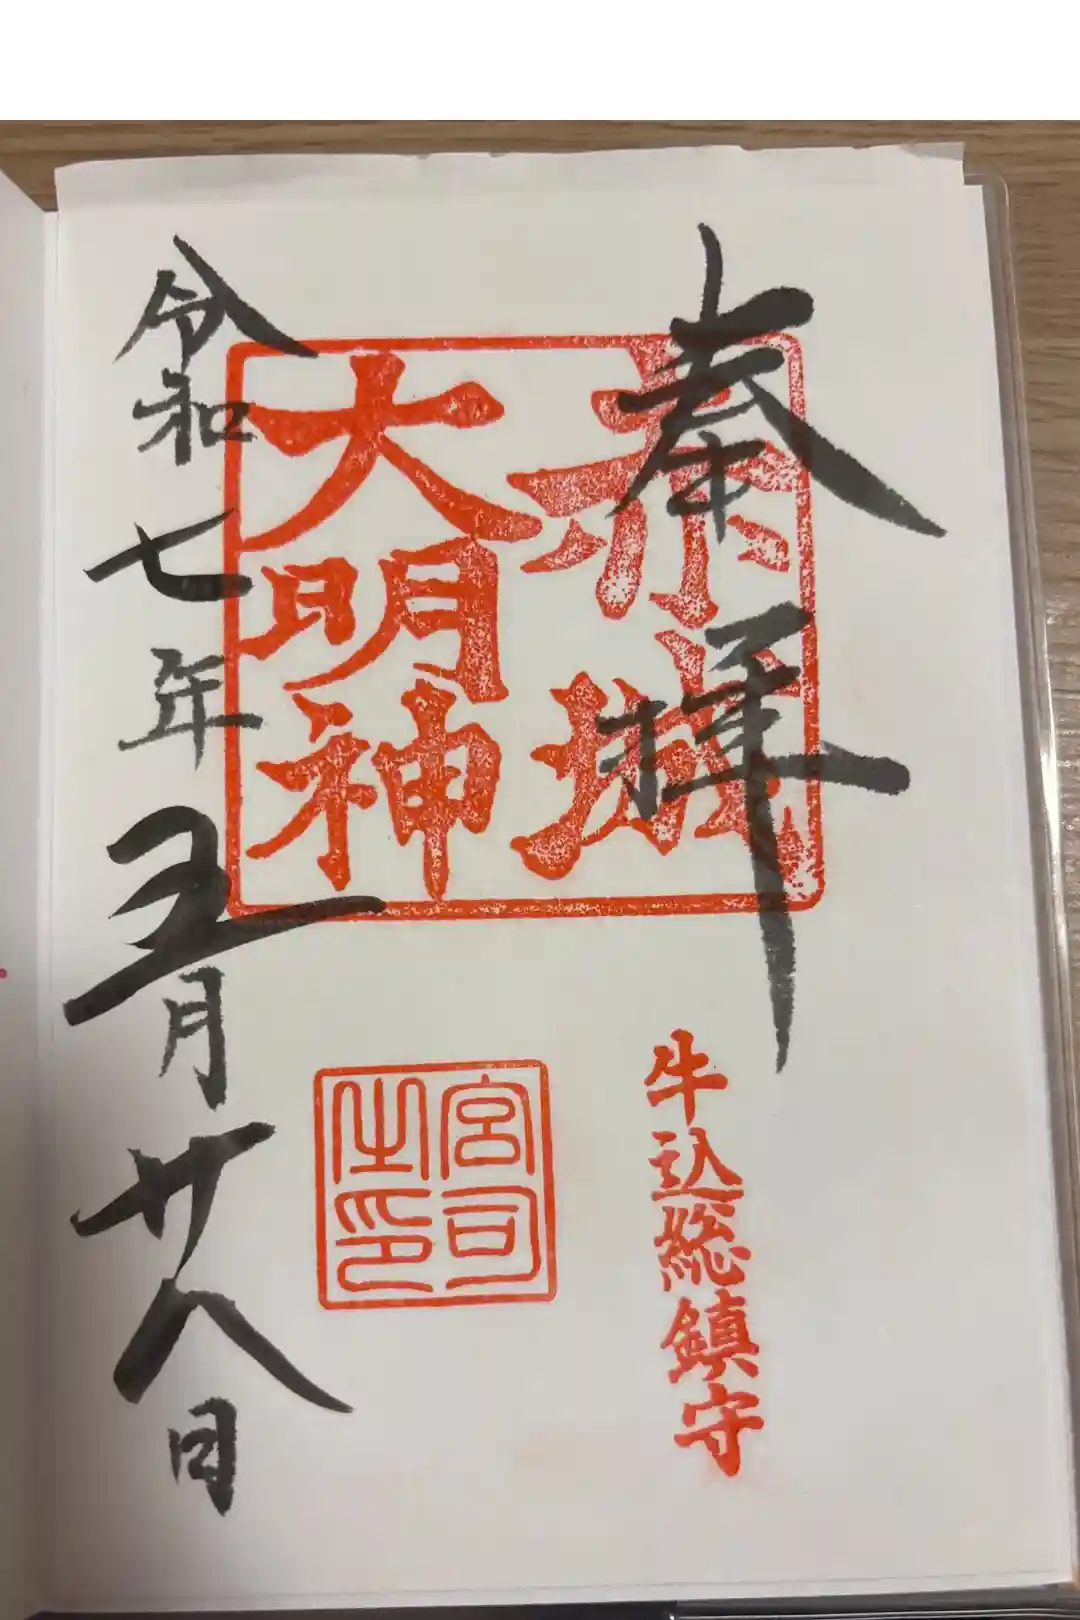 奉拝
赤城
大明神
牛込総鎮守
宮司
之印
令和七年五月廿八日